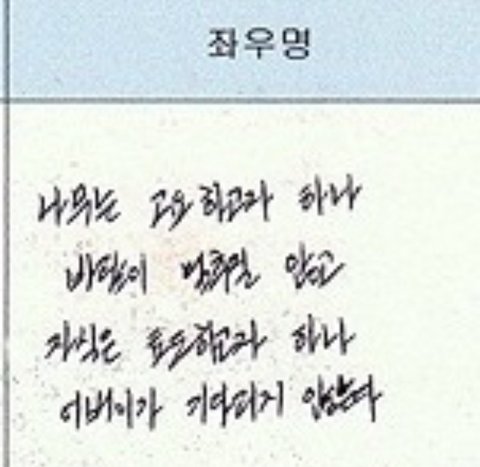 좌우명
나무는 고요하고자 하나
바람이 멈추질 않고
자식은 효도하고자 하나
어버이가 기다리지 않는다